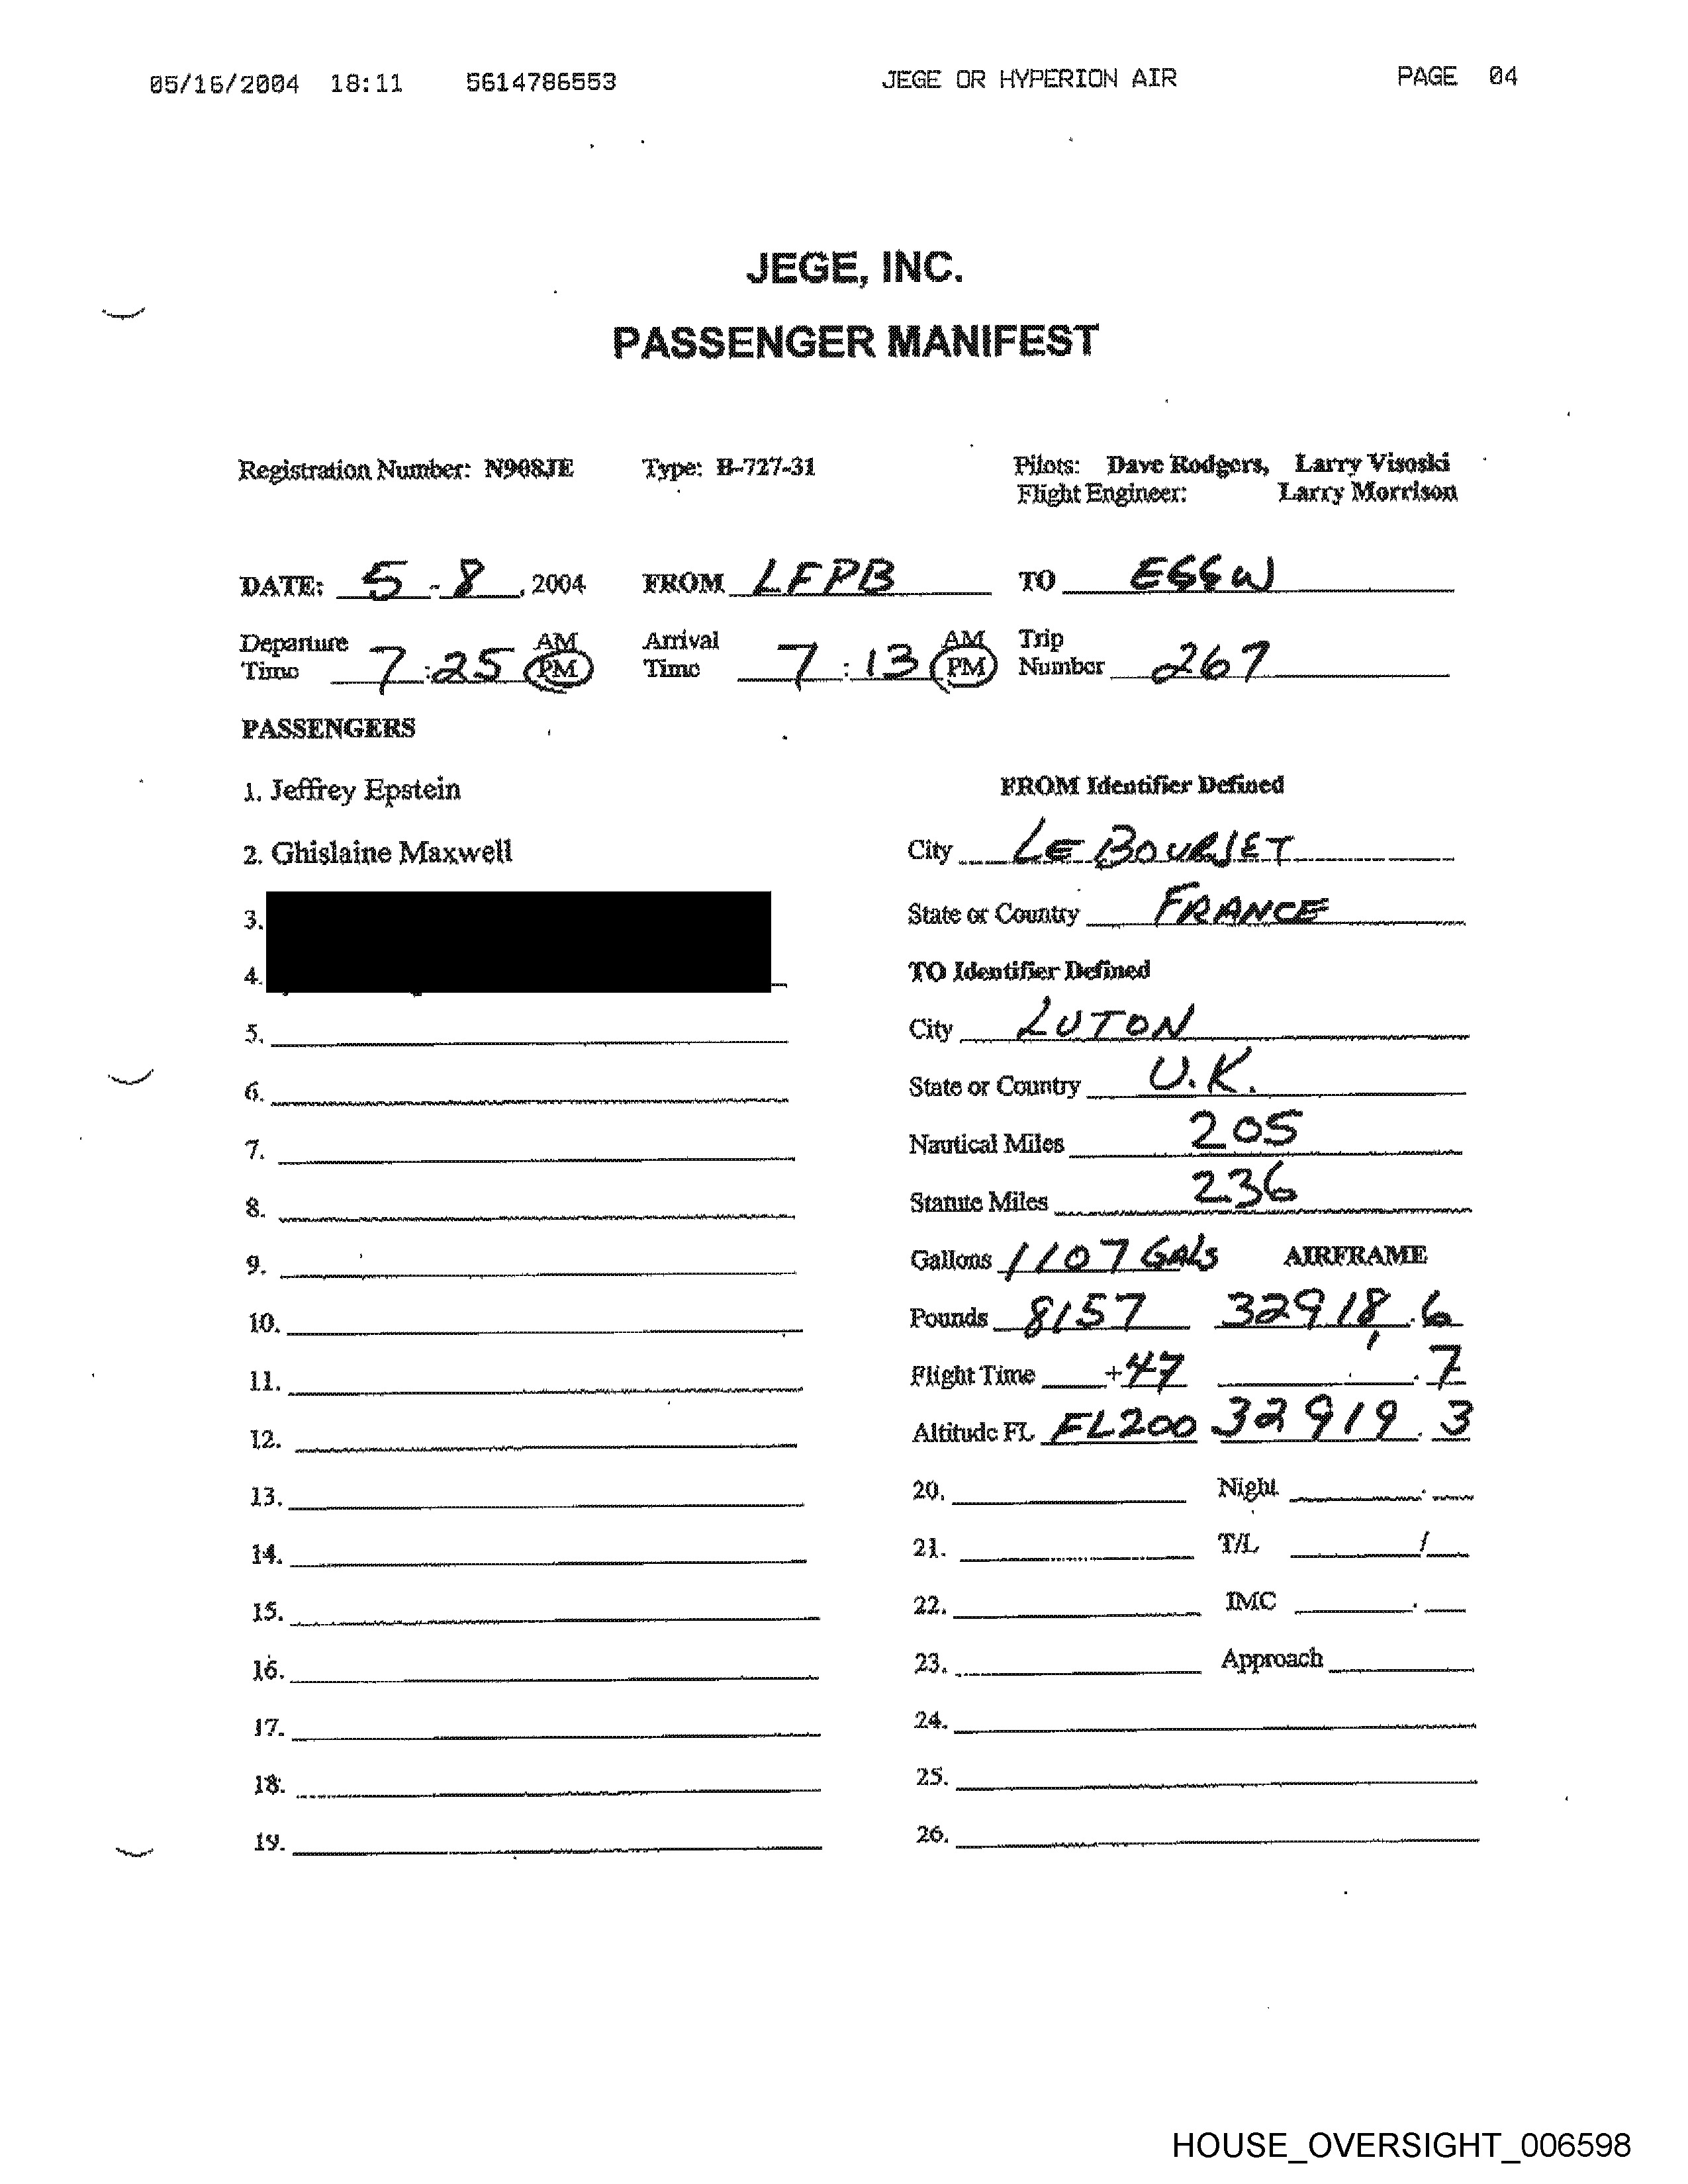 05/16/2004 18:11 5614786553 JEGE OR HYPERION AIR PAGE 04
JEGE, INC.
PASSENGER MANIFEST
Registration Number: N908JE Type: B-727-31 Pilots: Dave Rodgers, Larry Visoski
Flight Engineer: Larry Morrison
DATE: 5-8, 2004 FROM LFPB TO EGGW
Departure Time 7:25 AM PM Arrival Time 7:13 AM PM Trip Number 267
PASSENGERS
1. Jeffrey Epstein
2. Ghislaine Maxwell
3.
4.
5.
6.
7.
8.
9.
10.
11.
12.
13.
14.
15.
16.
17.
18.
19.
FROM Identifier Defined
City LE BOURJET
State or Country FRANCE
TO Identifier Defined
City LUTON
State or Country U.K.
Nautical Miles 205
Statute Miles 236
Gallons 1107 GALS AIRFRAME
Pounds 8157 32918.6
Flight Time +47 .7
Altitude FL FL200 32919.3
20. Night .
21. T/L /
22. IMC .
23. Approach
24.
25.
26.
HOUSE_OVERSIGHT_006598